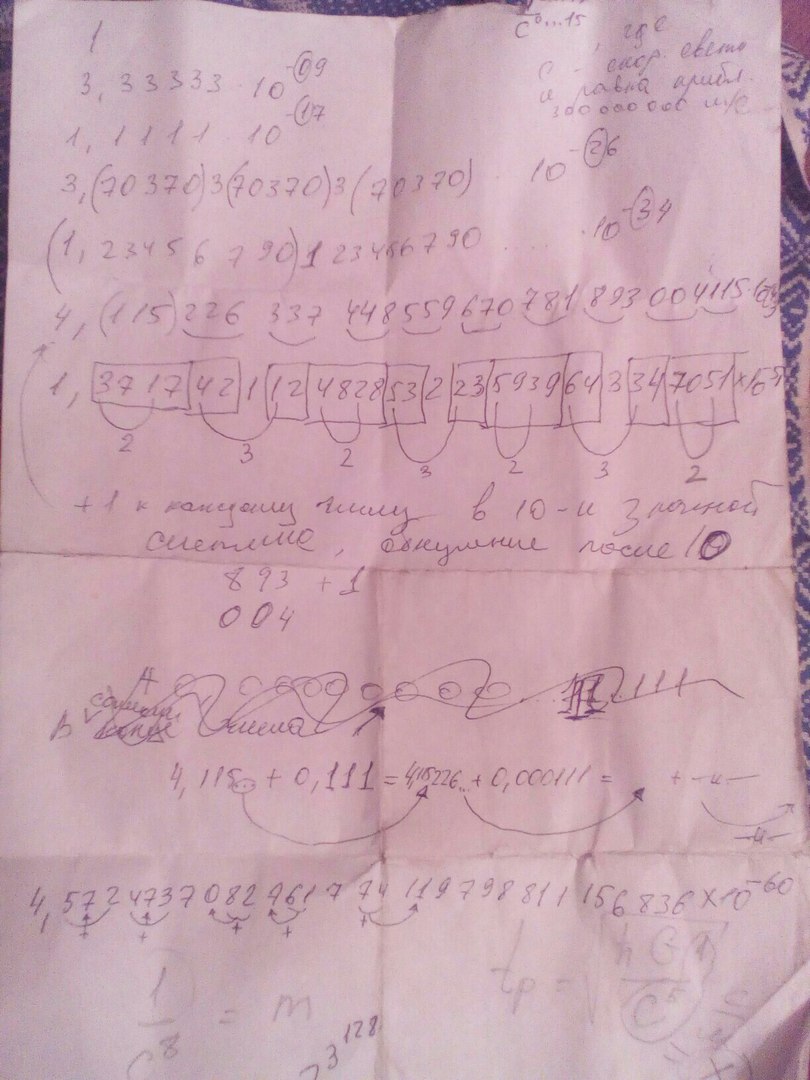 C
, где
C - скор. света
и равна прибл.
300 000 000 м/с
1
3, 33333 · 10⁻⁰⁹
1, 1111 10⁻¹⁷
3,(70370)3(70370)3(70370) · 10⁻²⁶
(1, 23456 790)1 23456790 ...... 10⁻³⁴
4, (115)226 337 448 559 670 781 893 004 115
1, 3717 42 1 12 4828 53 2 23 5939 64 3 34 7051 ×10
2 3 2 3 2 3 2
+ 1 к каждому числу в 10-и значной
системе, обнуление после 10
893 + 1
004
A
B
числа
4, 115... + 0,111 = 4,115226... + 0,000111 = + —и—
—и—
4, 572 4737 082 961 7 74 119798811 156836 ×10⁻⁶⁰
+ + + + +
1/C⁸ = m
tp = √ hG / C⁵
3¹²⁸